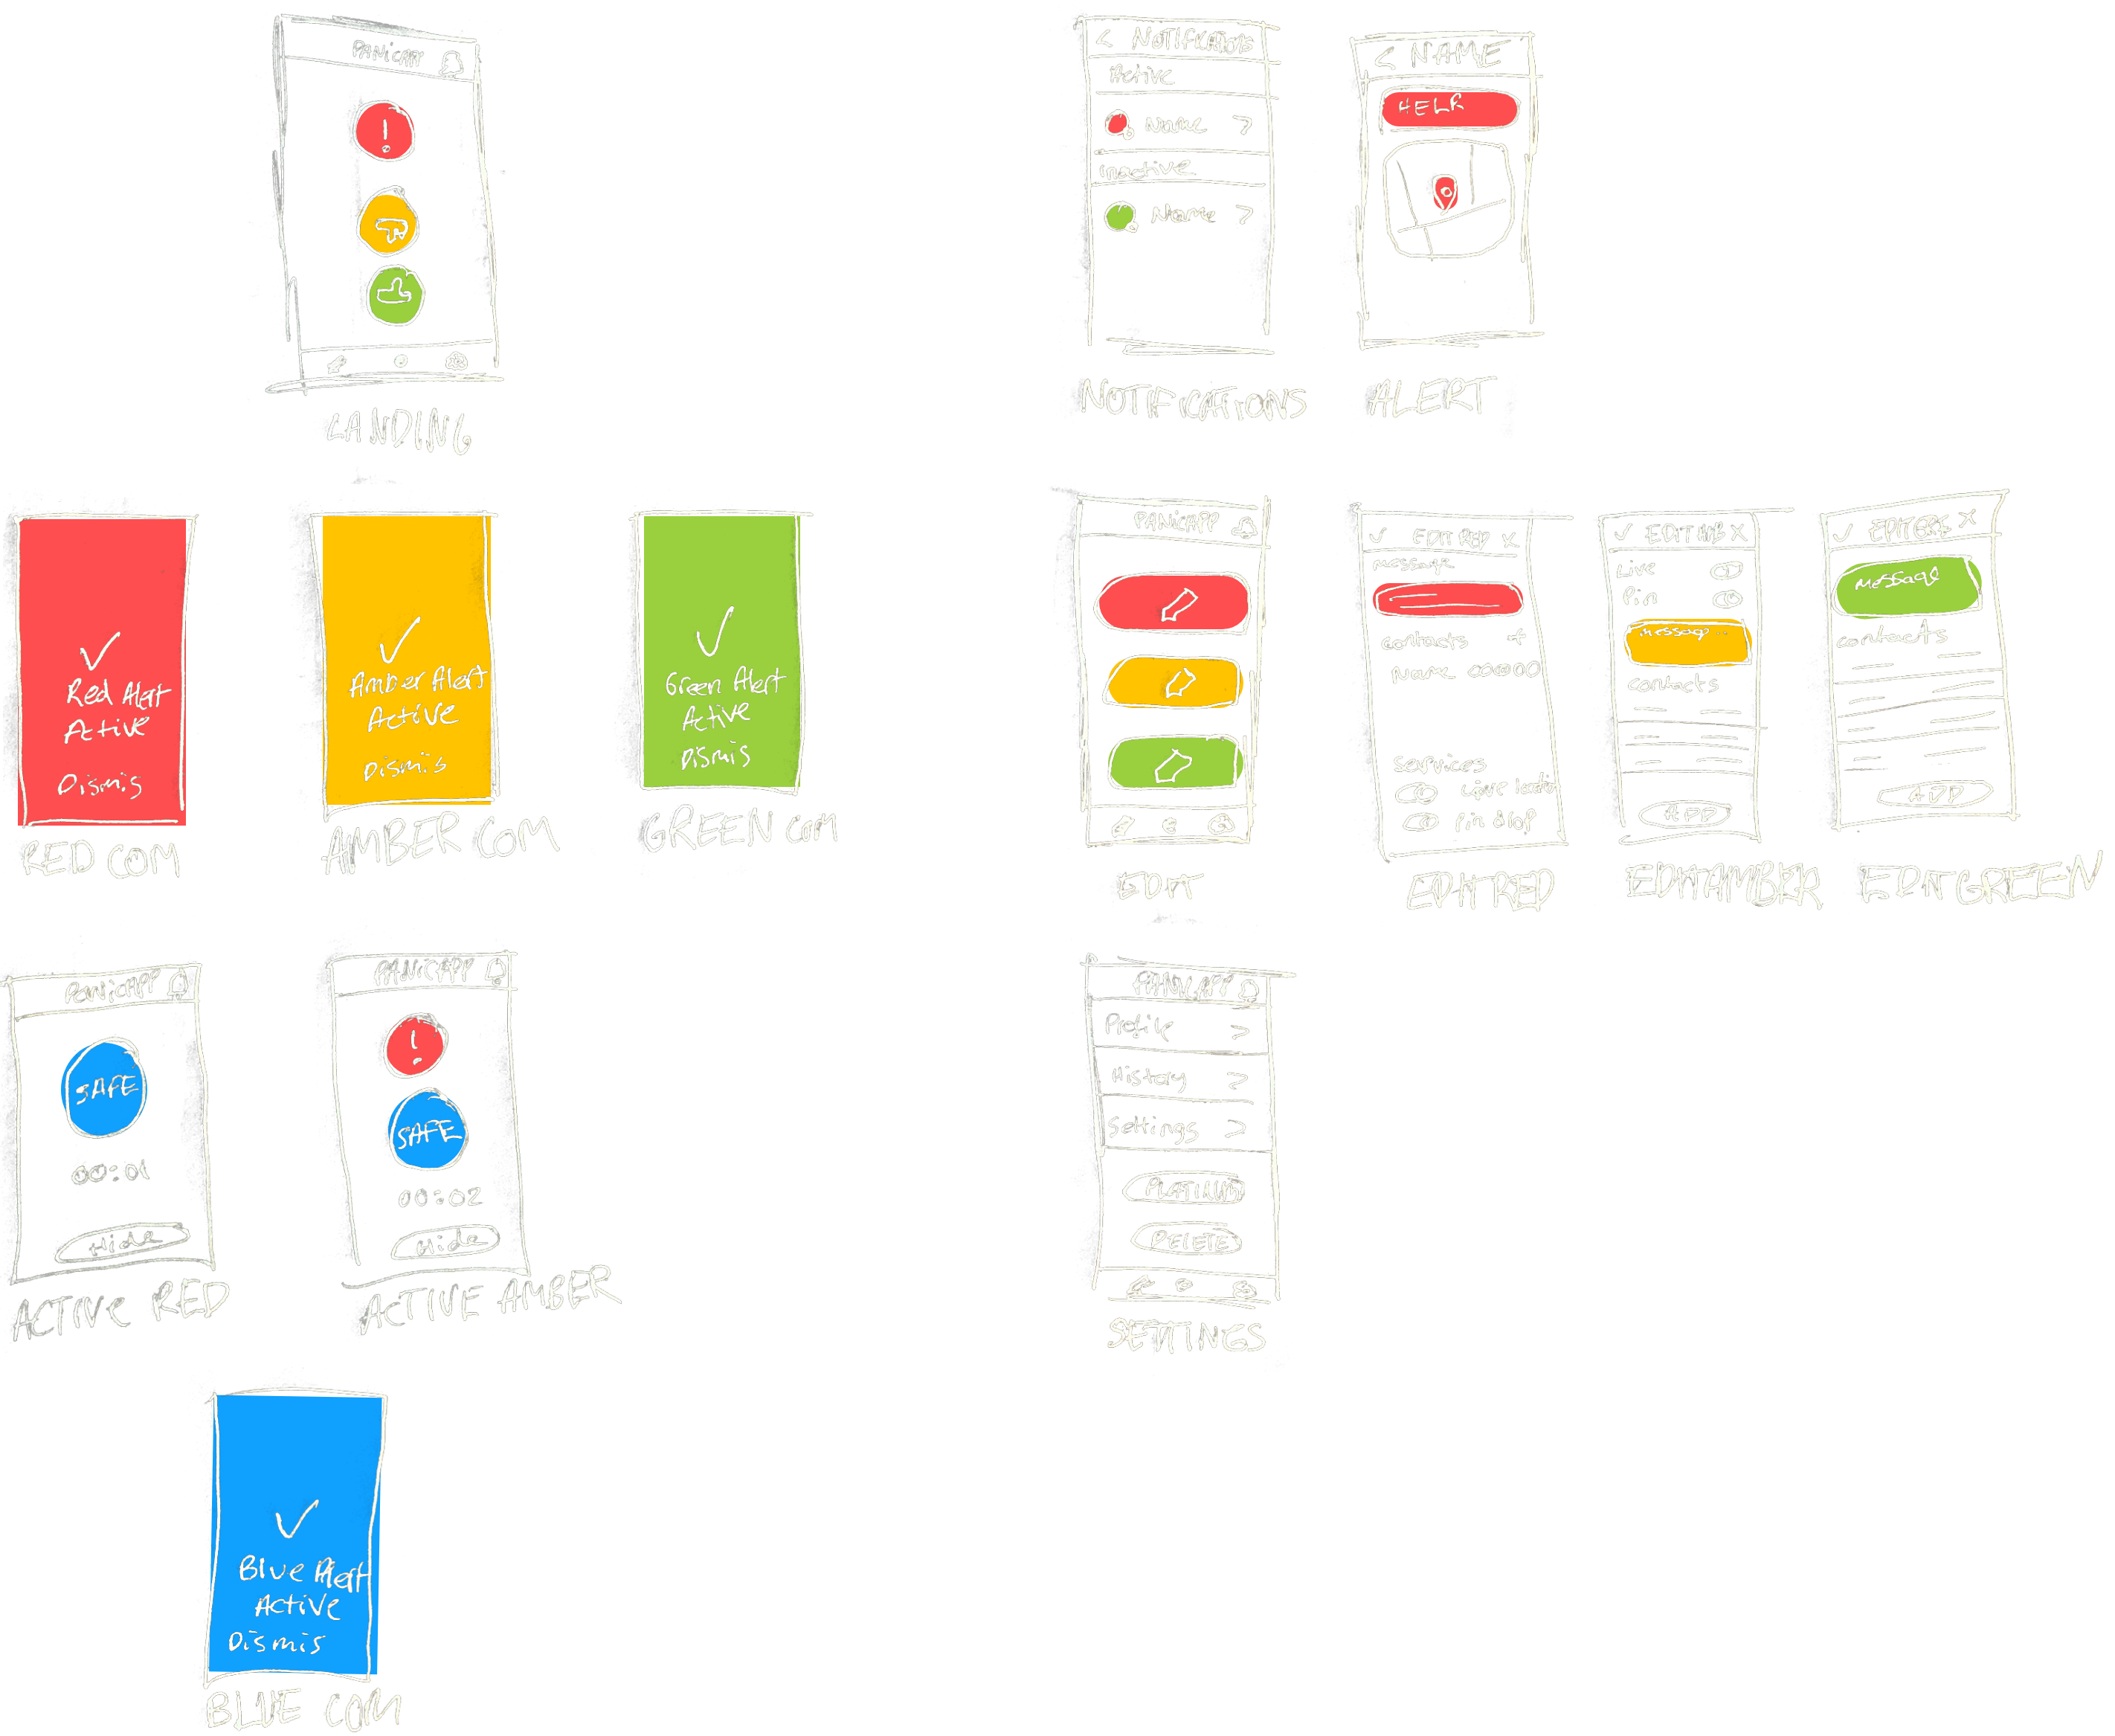 PANiCAPP
!
LANDING
< NOTIFICATIONS
Active
Name >
inactive
Name >
NOTIFICATIONS
< NAME
HELP
ALERT
Red Alert
Active
Dismis
RED COM
Amber Alert
Active
Dismis
AMBER COM
Green Alert
Active
Dismis
GREEN COM
PANiCAPP
EDIT
EDIT RED X
message
contacts +
Name 000000
Services
Live locatio
Pin drop
EDIT RED
EDIT AMB X
Live
Pin
Message...
contacts
ADD
EDIT AMBER
EDIT GRE X
Message
contacts
ADD
EDIT GREEN
PANiCAPP
SAFE
00:01
Hide
ACTIVE RED
PANiCAPP
!
SAFE
00:02
Hide
ACTIVE AMBER
PANiCAPP
Profile >
History >
Settings >
PLATINUM
DELETE
SETTINGS
Blue Alert
Active
Dismis
BLUE COM